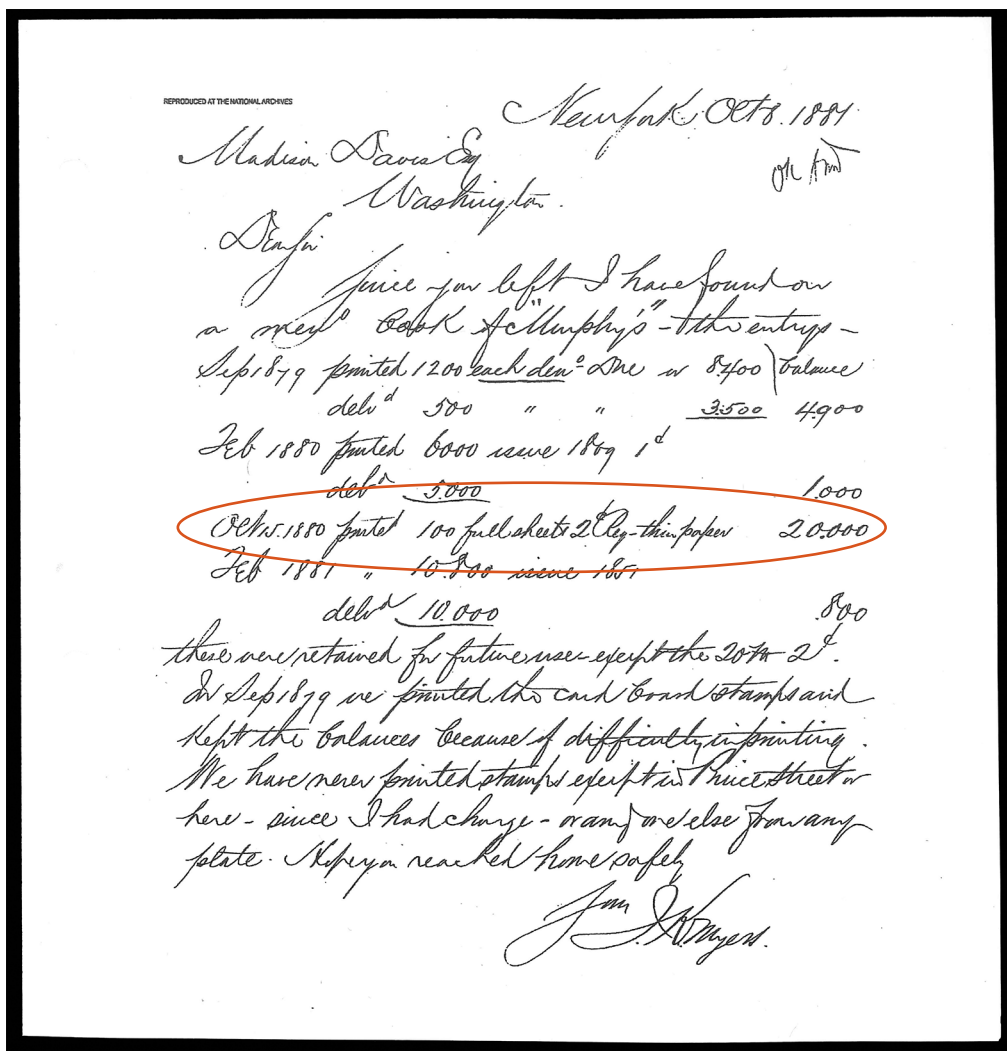 REPRODUCED AT THE NATIONAL ARCHIVES
New York Oct 8. 1881
Madison Davis Esq
OK
Washington.
Dear Sir
Since you left I have found on
a memo Book of "Murphy's" - the entrys -
Sep 1879 printed 1200 each deno Due or 8400 balance
delvd 500 " " 3.500 4900
Feb 1880 printed 6000 issue 1869 1¢
delvd 5.000 1.000
Oct 15. 1880 printed 100 full sheets 2¢ Reg - thin paper 20.000
Feb 1881 " 10.800 issue 1851
delvd 10.000 .800
these were retained for future use - exept the 20 m 2¢.
In Sep 1879 we printed the card board stamps and
Kept the balances because of difficulty in printing.
We have never printed stamps exept in Price Street or
here - since I had charge - or any one else from any
plate. Hope you reached home safely
Myers.